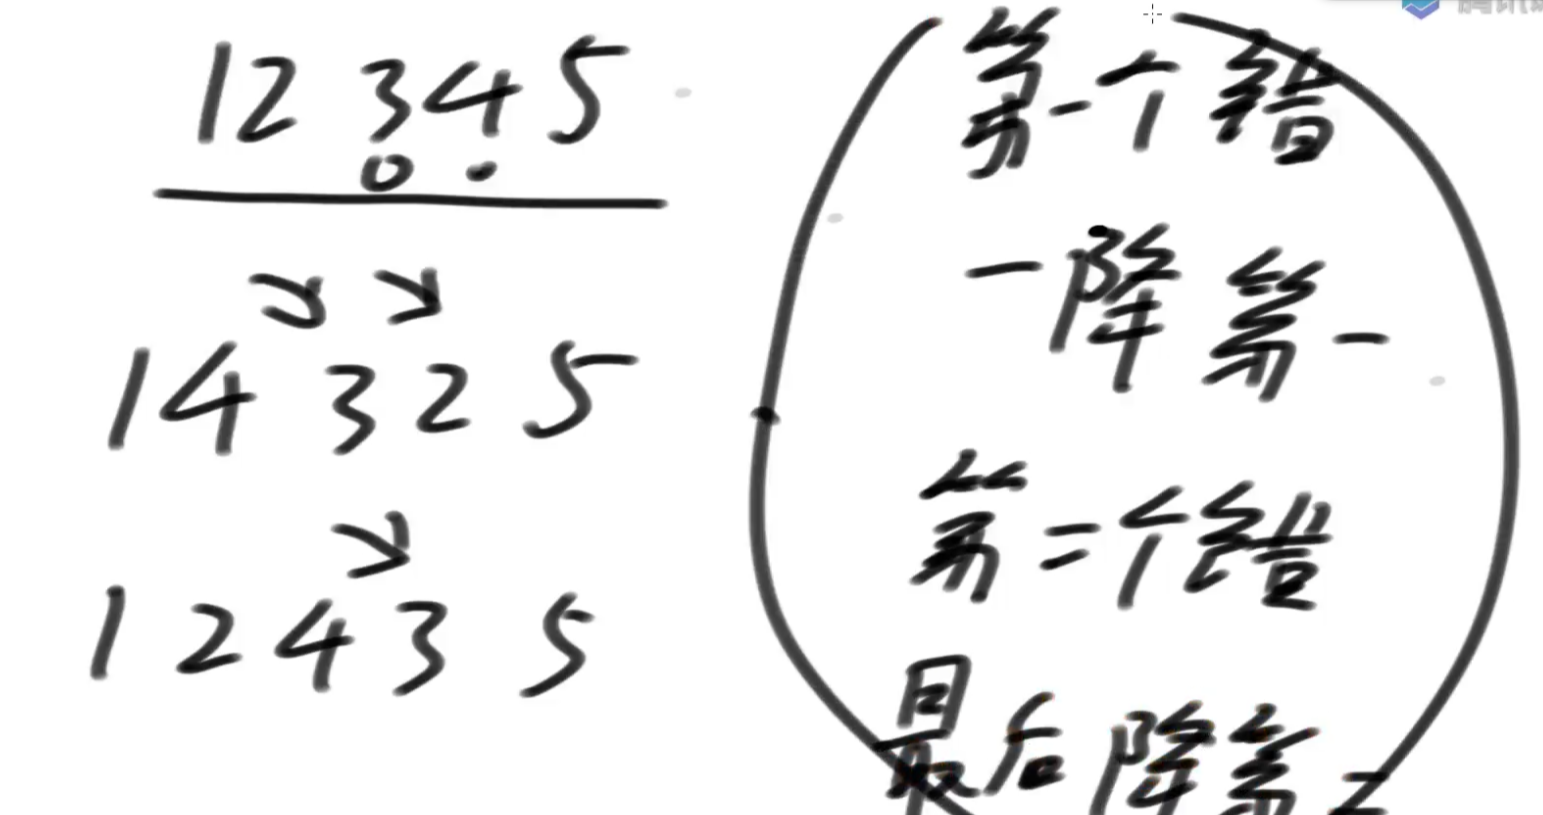 12 3 4 5
1 4 3 2 5
1 2 4 3 5
第一个错
一降第一
第二个错
最后降第二